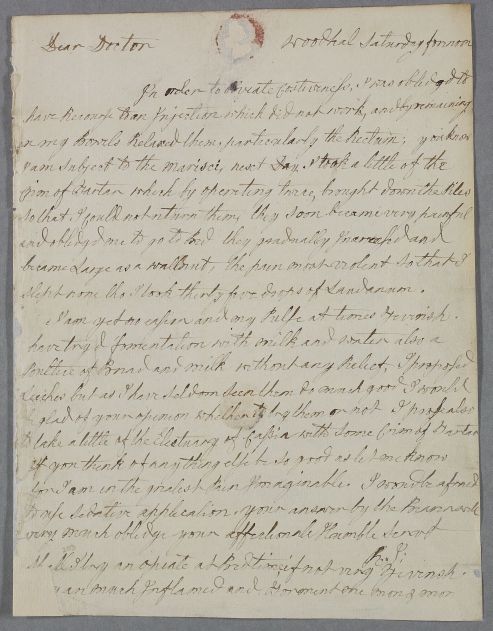 Dear Doctor Woodhal Saturday fornoon
In order to obviate Costiveness, I was obledgd to
have Recourse to an Injection which did not work, and by remaining
in my Bowels Relaxed them, particularly the Rectum; you know
I am Subject to the Marisci, next Day I took a little of the
Crim of Tartar which by operating twice, brought down the Piles
so that I could not return them, they soon became very painful
and obledgd me to go to Bed they gradually Increased and
became Large as a wallnut, the pain most violent So that I
slept none tho I took thirty five drops of Laudanum.
I am yet no easier and my Pulse at times Feverish.
have tryd fomentation with milk and water also a
Poultice of Bread and milk without any Relief, I proposed
Liches but as I have seldom seen them do much good I would
be glad of your openion whether to try them or not I propose also
to take a little of the Electuary of Cassia with Some Crim of Tartar
If you think of any thing else be so good as let me know
for I am in the greatest Pain Imaginable. I would be afraid
to use Sedative application. your answer by the Bearer will
very much obledge your affectionate Humble Servt
I try an opiate at Bedtime if not very Feverish.
I am much Inflamed and Torment one more & more